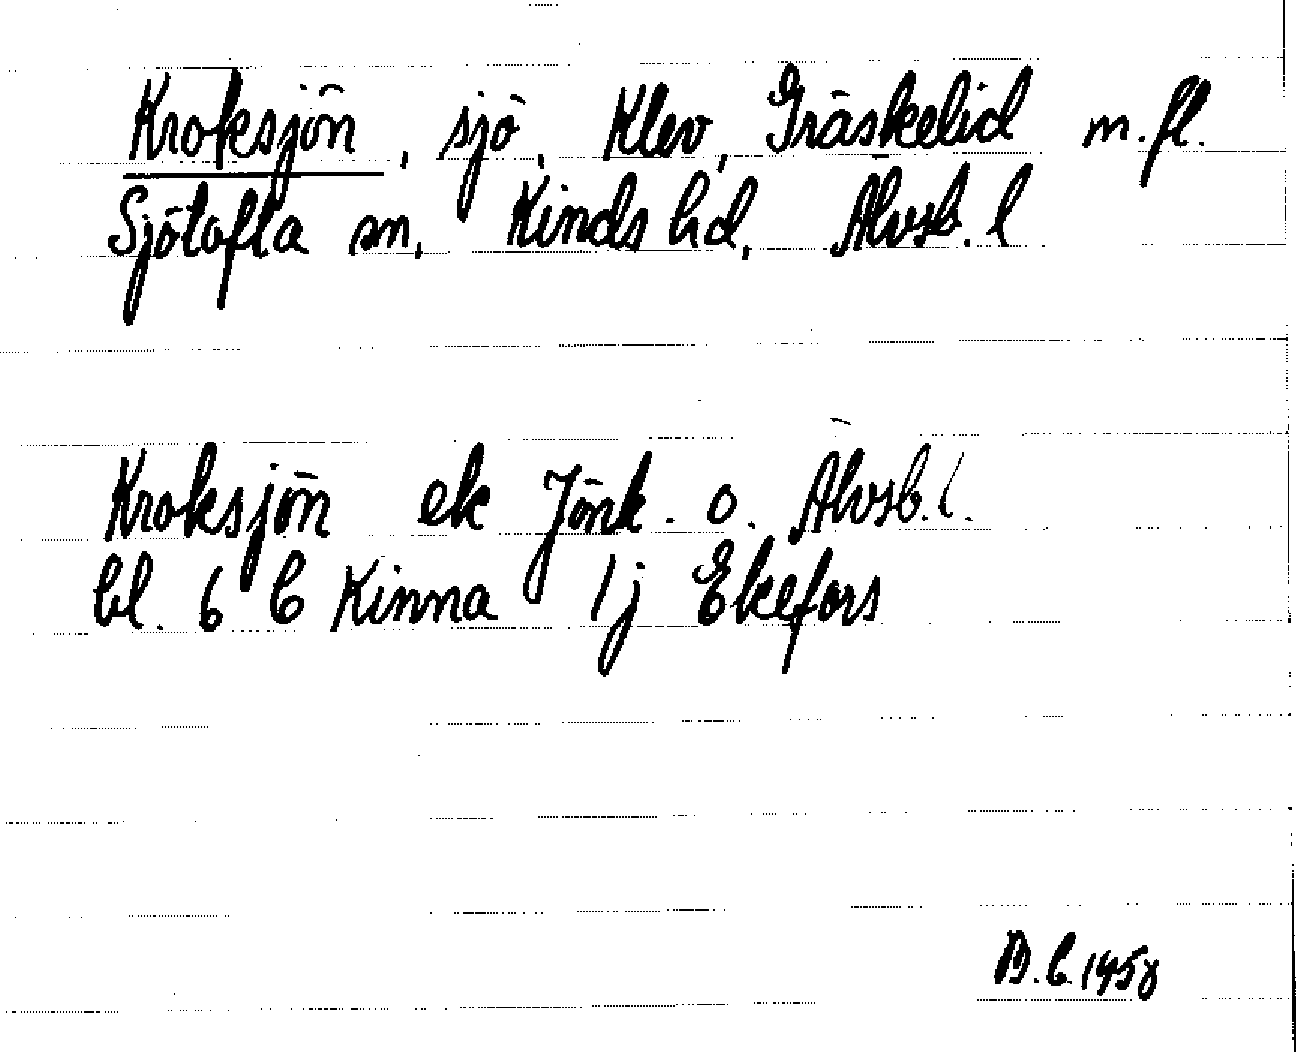 Kroksjön, sjö, Klev, Gräskelid m.fl.
Sjötofta sn, Kinds hd, Älvsb. l
Kroksjön ek Jönk. o. Älvsb. l.
bl. 6 C Kinna 1j Ekefors
B.C. 1958